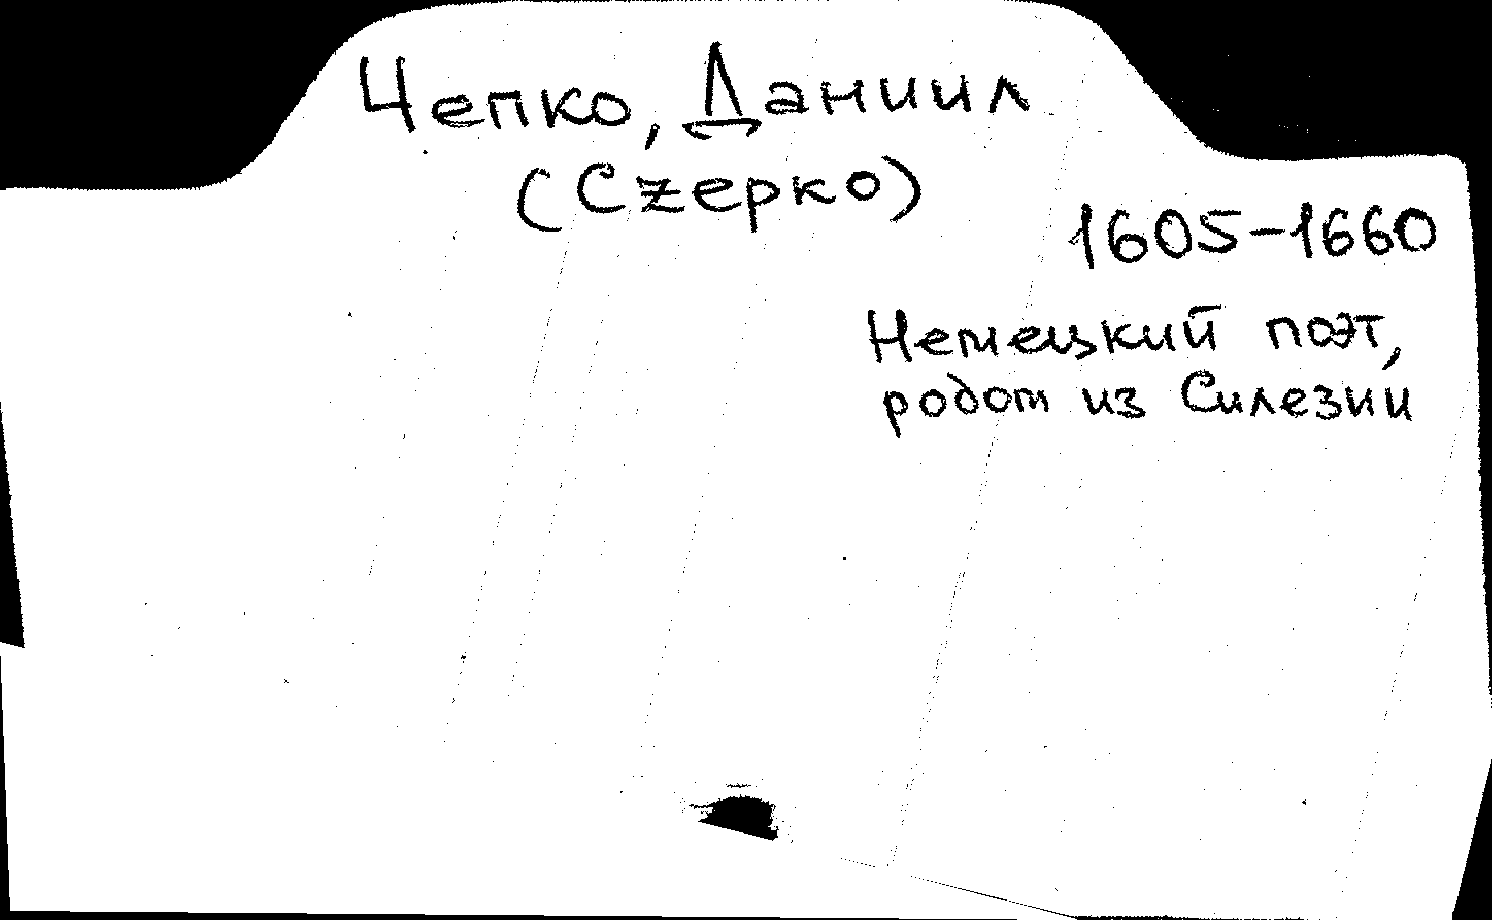 Чепко, Даниил
(Czepko)
1605-1660
Немецкий поэт,
родом из Силезии